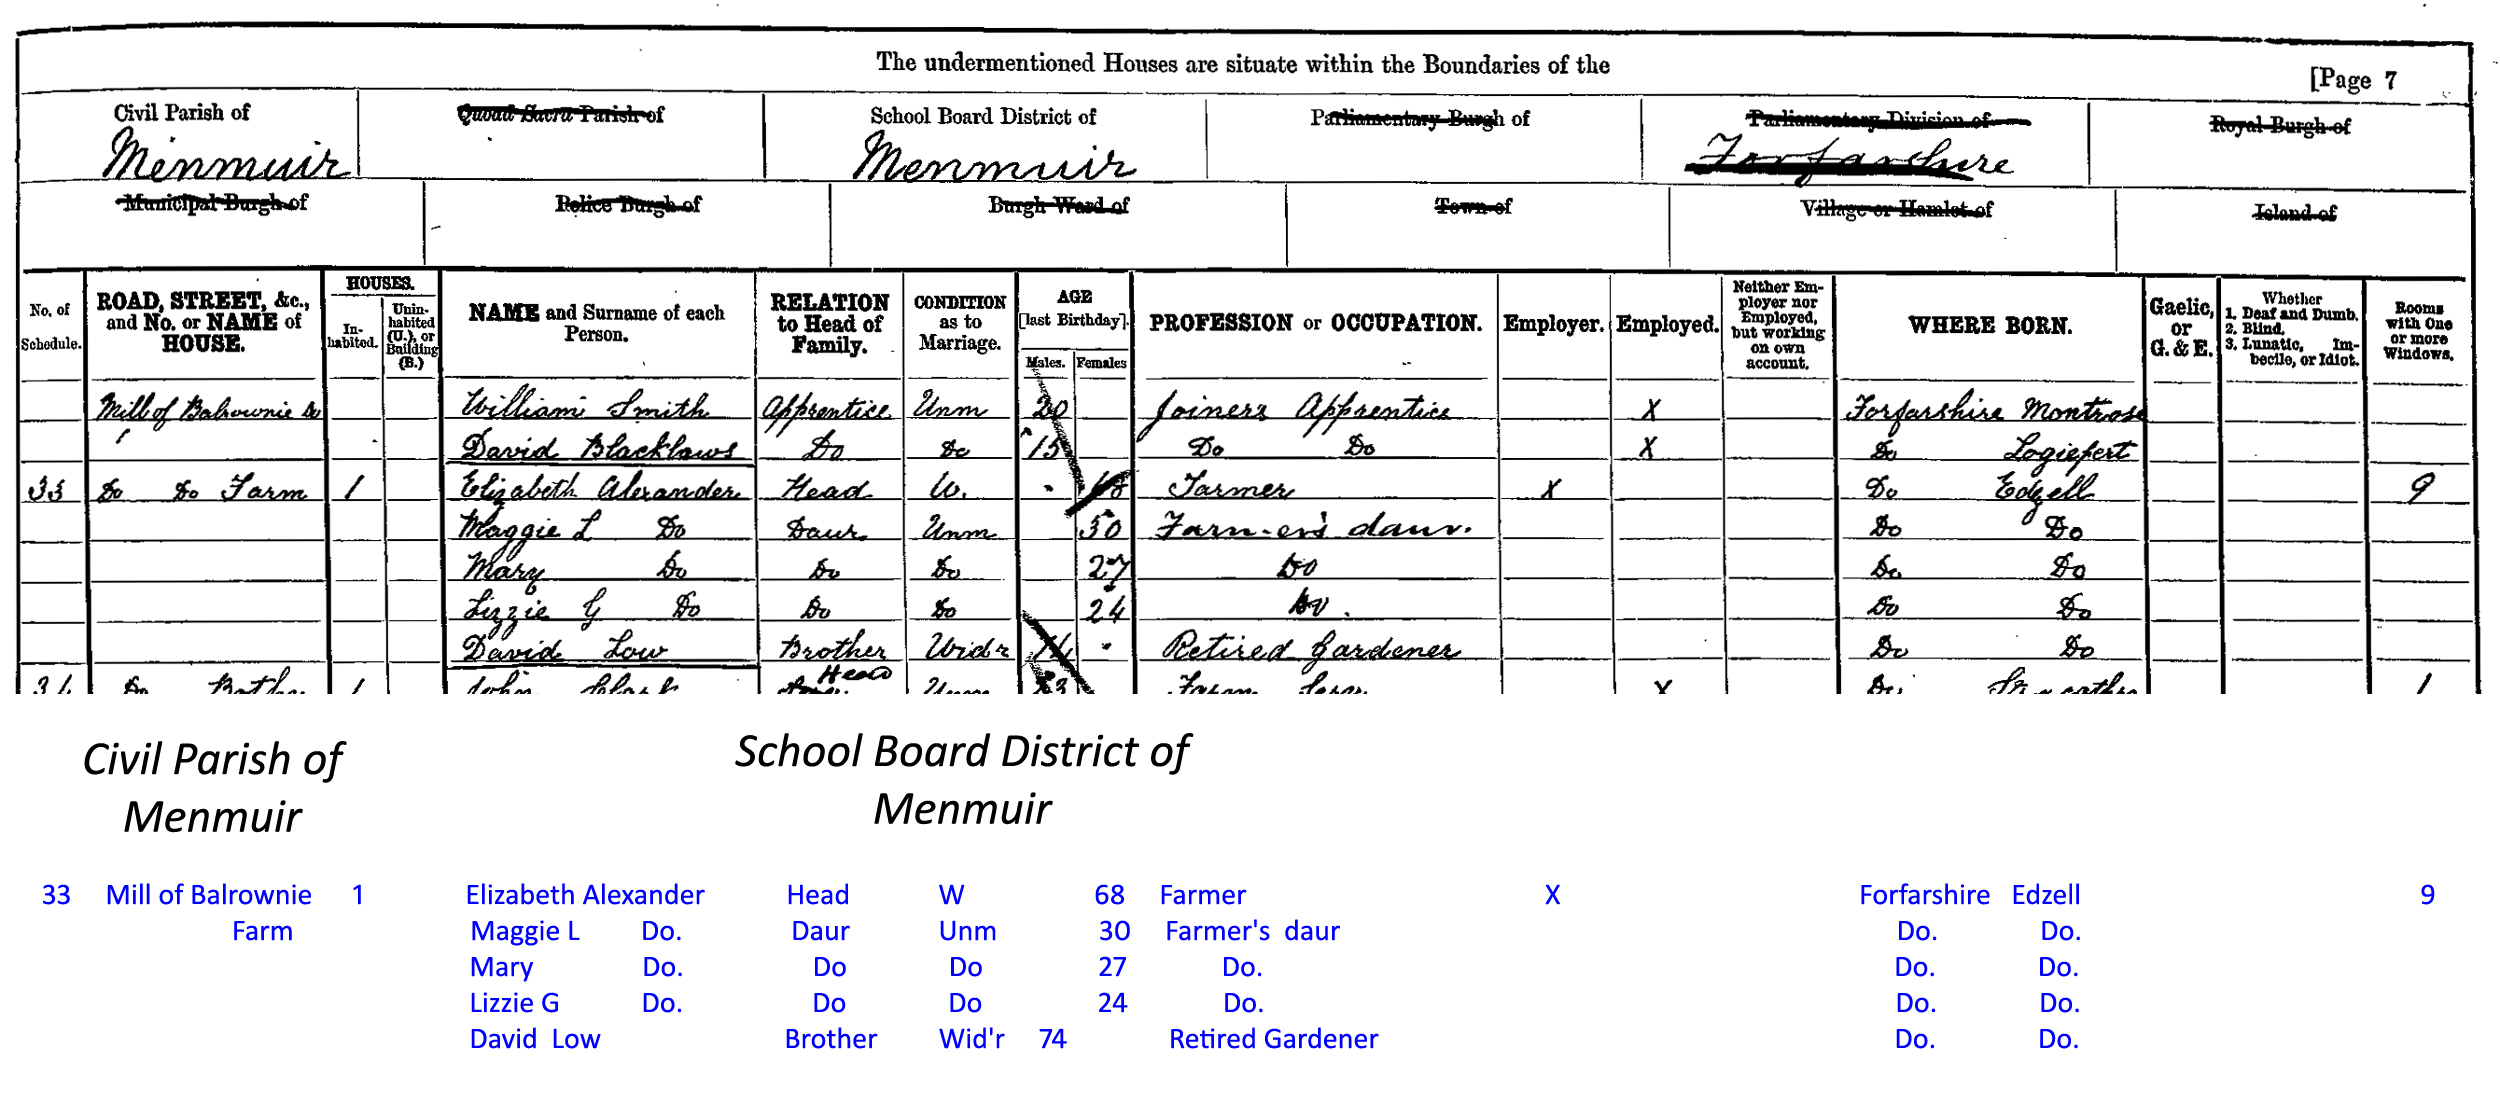 The undermentioned Houses are situate within the Boundaries of the
[Page 7
Civil Parish of Quoad Sacra Parish of School Board District of Parliamentary Burgh of Parliamentary Division of Royal Burgh of
Menmuir Menmuir Forfarshire
Municipal Burgh of Police Burgh of Burgh Ward of Town of Village or Hamlet of Island of
No. of Schedule. ROAD, STREET, &c., and No. or NAME of HOUSE. HOUSES. Inhabited. Uninhabited (U.), or Building (B.) NAME and Surname of each Person. RELATION to Head of Family. CONDITION as to Marriage. AGE [last Birthday]. Males. Females PROFESSION or OCCUPATION. Employer. Employed. Neither Employer nor Employed, but working on own account. WHERE BORN. Gaelic, or G. & E. Whether 1. Deaf and Dumb. 2. Blind. 3. Lunatic, Imbecile, or Idiot. Rooms with One or more Windows.
Mill of Balrownie Do William Smith Apprentice Unm 20 Joiners Apprentice X Forfarshire Montrose
David Blacklaws Do Do 15 Do Do X Do Logiepert
33 Do Do Farm 1 Elizabeth Alexander Head W. 68 Farmer X Do Edzell 9
Maggie L Do Daur Unm 30 Farmer's daur. Do Do
Mary Do Do Do 27 Do Do Do
Lizzie G Do Do Do 24 Do. Do Do
David Low Brother Widr 74 Retired Gardener Do Do
34 Do 1 John Head Unm 23 Farm X Do 1
Civil Parish of
Menmuir
School Board District of
Menmuir
33 Mill of Balrownie 1 Elizabeth Alexander Head W 68 Farmer X Forfarshire Edzell 9
Farm Maggie L Do. Daur Unm 30 Farmer's daur Do. Do.
Mary Do. Do Do 27 Do. Do. Do.
Lizzie G Do. Do Do 24 Do. Do. Do.
David Low Brother Wid'r 74 Retired Gardener Do. Do.